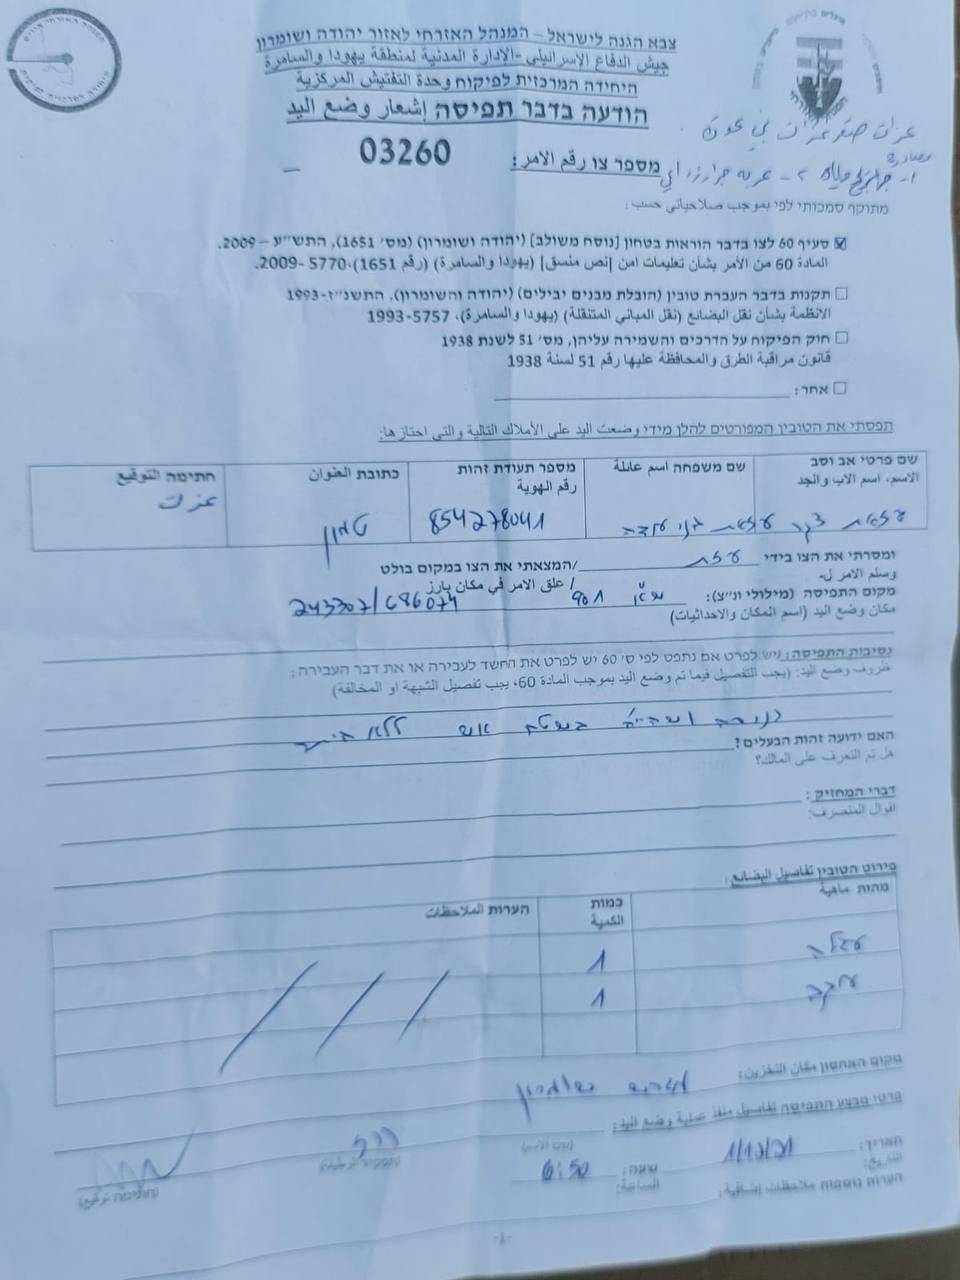 צבא הגנה לישראל – המנהל האזרחי לאזור יהודה ושומרון
جيش الدفاع الإسرائيلي -الإدارة المدنية لمنطقة يهودا والسامرة
היחידה המרכזית לפיקוח وحدة التفتيش المركزية
הודעה בדבר תפיסה إشعار وضع اليد
عزات صقر عزات بني عودة
מספר צו رقم الامر: 03260
מתוקף סמכותי לפי بموجب صلاحياتي حسب:
☒ סעיף 60 לצו בדבר הוראות בטחון [נוסח משולב] (יהודה ושומרון) (מס' 1651), התש"ע – 2009.
المادة 60 من الأمر بشأن تعليمات امن [نص منسق] (يهودا والسامرة) (رقم 1651)،5770 -2009.
☐ תקנות בדבר העברת טובין (הובלת מבנים יבילים) (יהודה והשומרון), התשנ"ז-1993
الانظمة بشأن نقل البضائع (نقل المباني المتنقلة) (يهودا والسامرة)، 5757-1993
☐ חוק הפיקוח על הדרכים והשמירה עליהן, מס' 51 לשנת 1938
قانون مراقبة الطرق والمحافظة عليها رقم 51 لسنة 1938
☐ אחר:
תפסתי את הטובין המפורטים להלן מידי وضعت اليد على الأملاك التالية والتي احتازها:
שם פרטי אב וסב שם משפחה اسم عائلة מספר תעודת זהות כתובת العنوان חתימה التوقيع
الاسم، اسم الاب والجد رقم الهوية
854278041 טמון عزات
ומסרתי את הצו בידי /המצאתי את הצו במקום בולט
وسلم الامر ل- / علق الامر في مكان بارز
מקום התפיסה (מילולי ונ"צ): 243307/686074
مكان وضع اليد (اسم المكان والاحداثيات)
נסיבות התפיסה: (יש לפרט אם נתפס לפי ס' 60 יש לפרט את החשד לעבירה או את דבר העבירה:
ظروف وضع اليد: (يجب التفصيل فيما تم وضع اليد بموجب المادة 60، يجب تفصيل الشبهة او المخالفة)
בשטח אש ללא
האם ידועה זהות הבעלים?
هل تم التعرف على المالك؟
דברי המחזיק:
اقوال المتصرف:
פירוט הטובין تفاصيل البضائع:
מהות ماهية כמות הערות الملاحظات
الكمية
עגלה 1
1
מקום האחסון مكان التخزين:
פרטי מבצע התפיסה تفاصيل منفذ عملية وضع اليد:
תאריך: 1/12/21 שעה: 6:50
التاريخ: الساعة:
הערות נוספות ملاحظات إضافية:
-1-